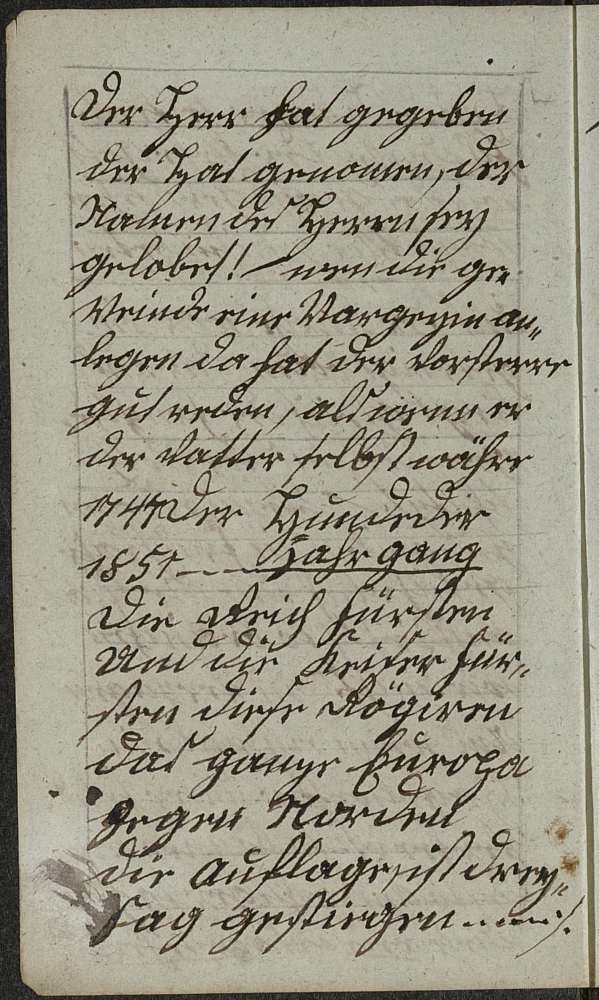 Der Herr hat gegeben
der Hat genomen, der
Namen des Herrn sey
gelobet! wen die ge„
Meinde eine Vargezin an„
legen da hat der Vorsterre
gut reden, als wenn er
der Vatter selbst währe
1747 Der Hundeder
1851 Jahrgang
Die Reich fürsten
Und die Keiser für„
sten diese Rögiren
das ganze Europa
Gegen Norden
die Auflage, ist drey„
fag gestiegen